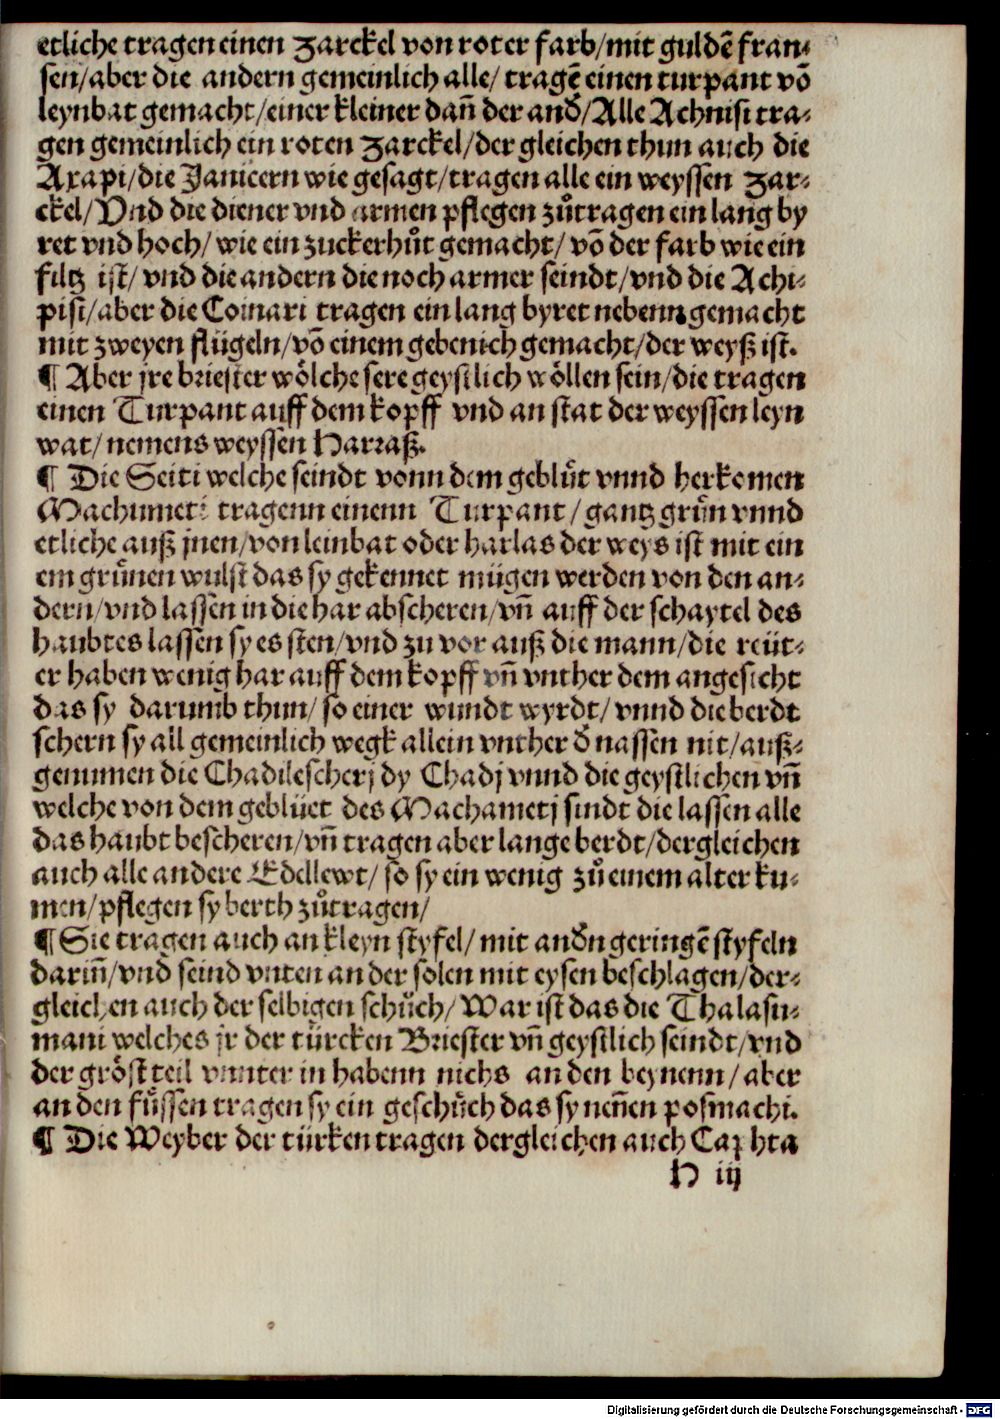 etliche tragen einen Zarckel von roter farb/mit guldẽ fran⸗
sen/aber die andern gemeinlich alle/ tragẽ einen turpant võ
leynbat gemacht/einer kleiner dañ der andͤ/Alle Achnisi tra⸗
gen gemeinlich ein roten Zarckel/der gleichen thun auch die
Axapi/die Janicern wie gesagt/tragen alle ein weyssen Zar⸗
ckel/Vnd die diener vnd armen pflegen zůtragen ein lang by
ret vnd hoch/ wie ein zuckerhůt gemacht/ võ der farb wie ein
filtz ist/ vnd die andern die noch armer seindt/vnd die Achi⸗
pisi/aber die Coinari tragen ein lang byret nebenn gemacht
mit zweyen flügeln/võ einem gebenich gemacht/der weyß ist.
¶ Aber jre briester wölche sere geystlich wöllen sein/die tragen
einen Turpant auff dem kopff vnd an stat der weyssen leyn
wat/ nemens weyssen Harraß.
¶ Die Seiti welche seindt vonn dem geblůt vnnd herkomen
Machumeti tragenn einenn Turpant/ gantz grůn vnnd
etliche auß jnen/von leinbat oder harlas der weys ist mit ein
em grůnen wulst das sy gekennet mügen werden von den an⸗
dern/vnd lassen in die har abscheren/vñ auff der schaytel des
haubtes lassen sy es sten/vnd zu vor auß die mann/die reüt⸗
er haben wenig har auff dem kopff vñ vnther dem angesicht
das sy darumb thun/ so einer wundt wyrdt/ vnnd die berdt
schern sy all gemeinlich wegk allein vnther dͤ nassen nit/auß⸗
genumen die Chadilescherj dy Chadj vnnd die geystlichen vñ
welche von dem geblüet des Machametj sindt die lassen alle
das haubt bescheren/vñ tragen aber lange berdt/dergleichen
auch alle andere Edellewt/ so sy ein wenig zů einem alter ku⸗
men/pflegen sy berth zůtragen/
¶ Sie tragen auch an kleyn styfel/ mit andͤn geringẽ styfeln
dariñ/vnd seind vnten an der solen mit eysen beschlagen/der⸗
gleichen auch der selbigen schůch/ War ist das die Thalasu⸗
mani welches jr der türcken Briester vñ geystlich seindt/vnd
der gröst teil vnnter in habenn nichs an den beynenn/ aber
an den fůssen tragen sy ein geschůch das sy neñen posmachi.
¶ Die Weyber der türken tragen dergleichen auch Carphta
H iij
Digitalisierung gefördert durch die Deutsche Forschungsgemeinschaft - DFG